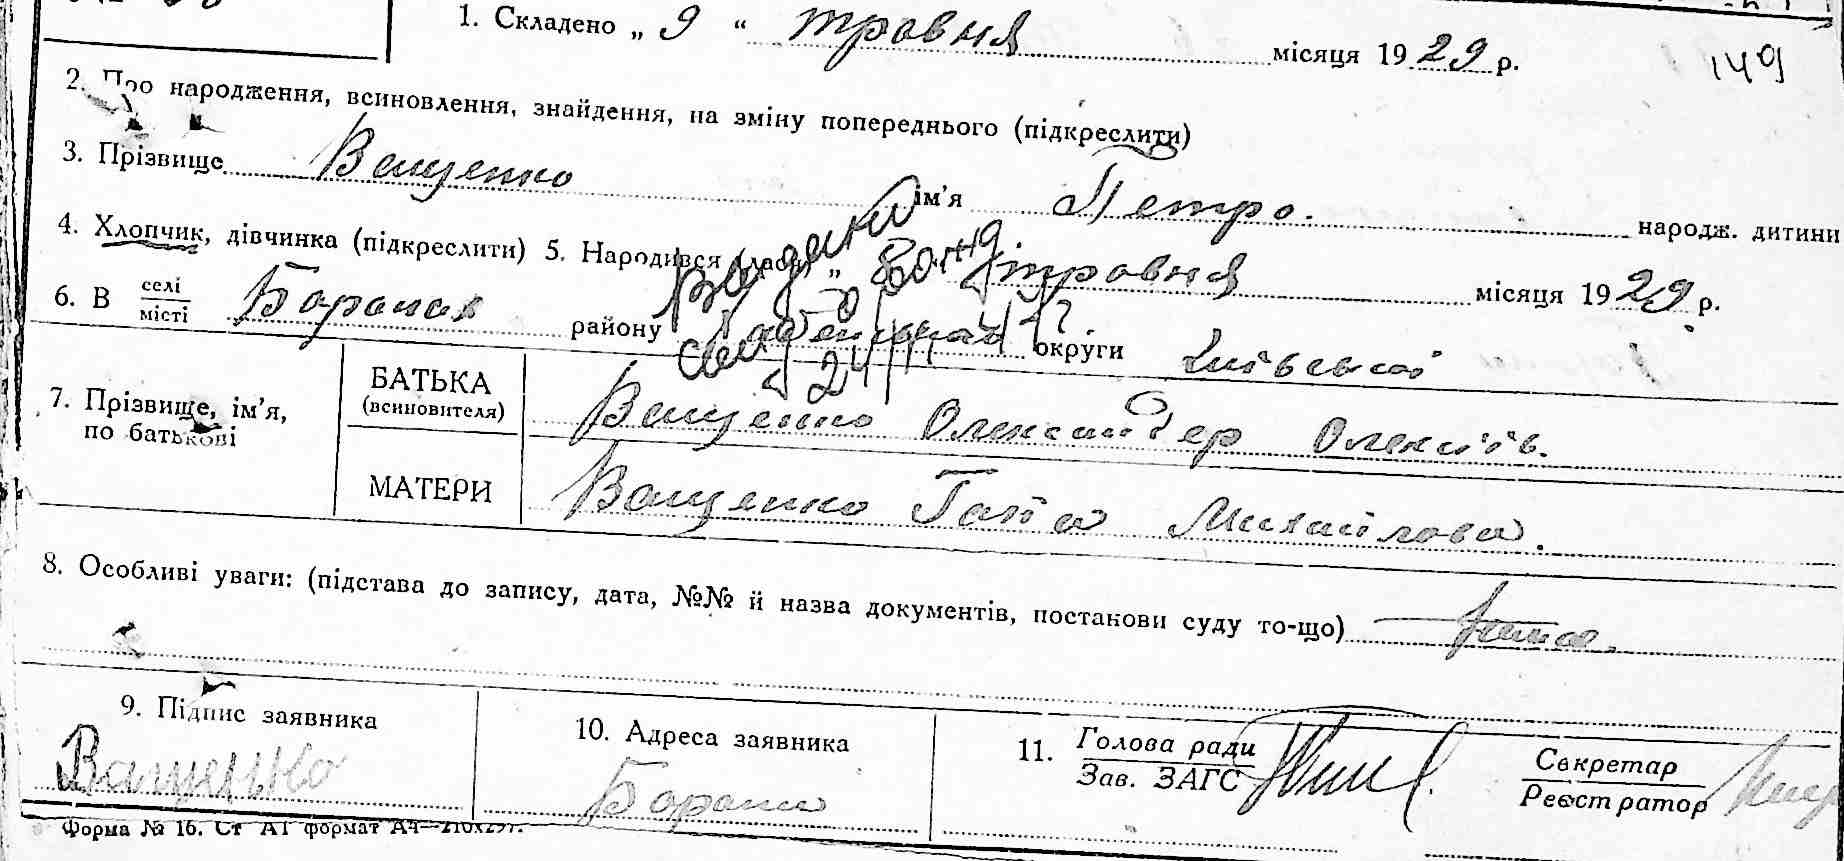 1. Складено „ 9 “ травня місяця 1929 р.
149
2. Про народження, всиновлення, знайдення, на зміну попереднього (підкреслити)
3. Прізвище Ващенко ім'я Петро. народж. дитини
4. Хлопчик, дівчинка (підкреслити) 5. Народився (лась) „ 8 травня місяця 1929 р.
6. В селі/місті району округи Київської
7. Прізвище, ім'я, по батькові
БАТЬКА (всиновителя) Ващенко Олександер Олексіїв.
МАТЕРИ Ващенко Ганна Михайлова.
8. Особливі уваги: (підстава до запису, дата, №№ й назва документів, постанови суду то-що)
9. Підпис заявника
10. Адреса заявника
11. Голова ради/Зав. ЗАГС
Секретар/Реєстратор
Ващенко
Форма № 16. Ст А1 формат А4—210х297.